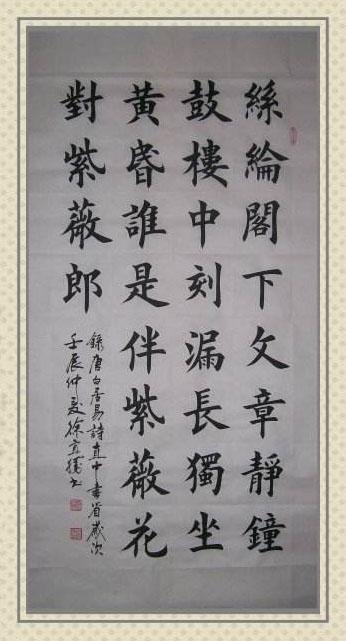 絲綸閣下文章靜鐘
鼓樓中刻漏長獨坐
黃昏誰是伴紫薇花
對紫薇郎
錄唐白居易詩直中書省歲次
壬辰仲夏徐立勝书